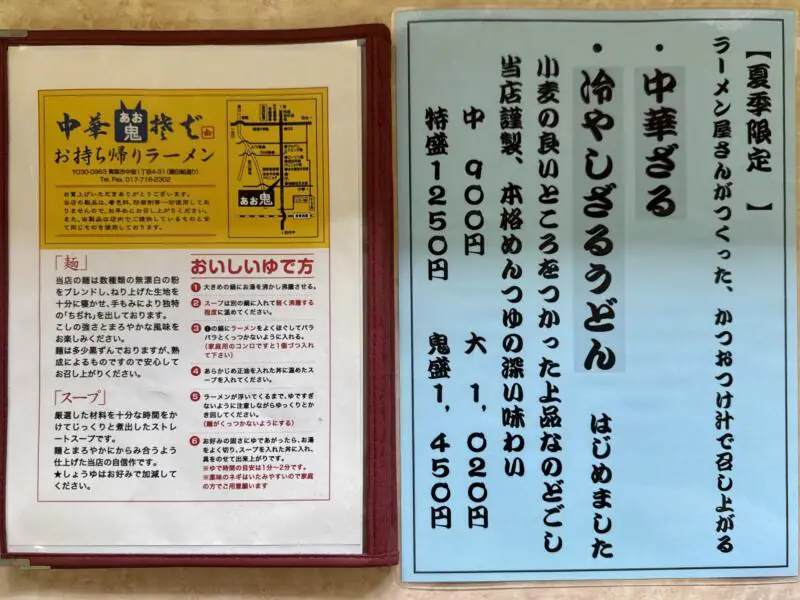 中華 あお鬼 そば
お持ち帰りラーメン
〒030-0963 青森市中佃1丁目4-31
Tel. Fax. 017-718-2302
お買上げいただきありがとうございます。
当店の製品は、着色料、防腐剤等一切使用してお
りませんので、お早めにお召し上がりください。
また、当製品は店内でご提供しているものと全
て同じものを使用しております。
あお鬼
「麺」
当店の麺は数種類の無漂白の粉
をブレンドし、ねり上げた生地を
十分に寝かせ、手もみにより独特
の「ちぢれ」を出しております。
こしの強さとまろやかな風味を
お楽しみください。
麺は多少黒ずんでおりますが、熟
成によるものですので安心して
お召し上がりください。
「スープ」
厳選した材料を十分な時間をか
けてじっくりと煮出したストレ
ートスープです。
麺とまろやかにからみ合うよう
仕上げた当店の自信作です。
★しょうゆはお好みで加減して
ください。
おいしいゆで方
1 大きめの鍋にお湯を沸かし沸騰させる。
2 スープは別の鍋に入れて軽く沸騰する
程度に温めてください。
3 ❶の鍋にラーメンをよくほぐしてパラ
パラとくっつかないように入れる。
(家庭用のコンロですと1個づつ入れ
て下さい)
4 あらかじめ正油を入れた丼に温めたス
ープを入れてください。
5 ラーメンが浮いてくるまで、ゆですぎ
ないように注意しながらゆっくりとか
き回してください。
(麺がくっつかないようにする)
6 お好みの固さにゆであがったら、お湯
をよく切り、スープを入れた丼に入れ、
具をのせて出来上がりです。
※ゆで時間の目安は1分〜2分です。
※薬味のネギはいたみやすいので家庭
の方でご用意願います
【夏季限定】
ラーメン屋さんがつくった、かつおつけ汁で召し上がる
・中華ざる
・冷やしざるうどん はじめました
小麦の良いところをつかった上品なのどごし
当店謹製、本格めんつゆの深い味わい
中 900円 大 1,020円
特盛1250円 鬼盛1,450円